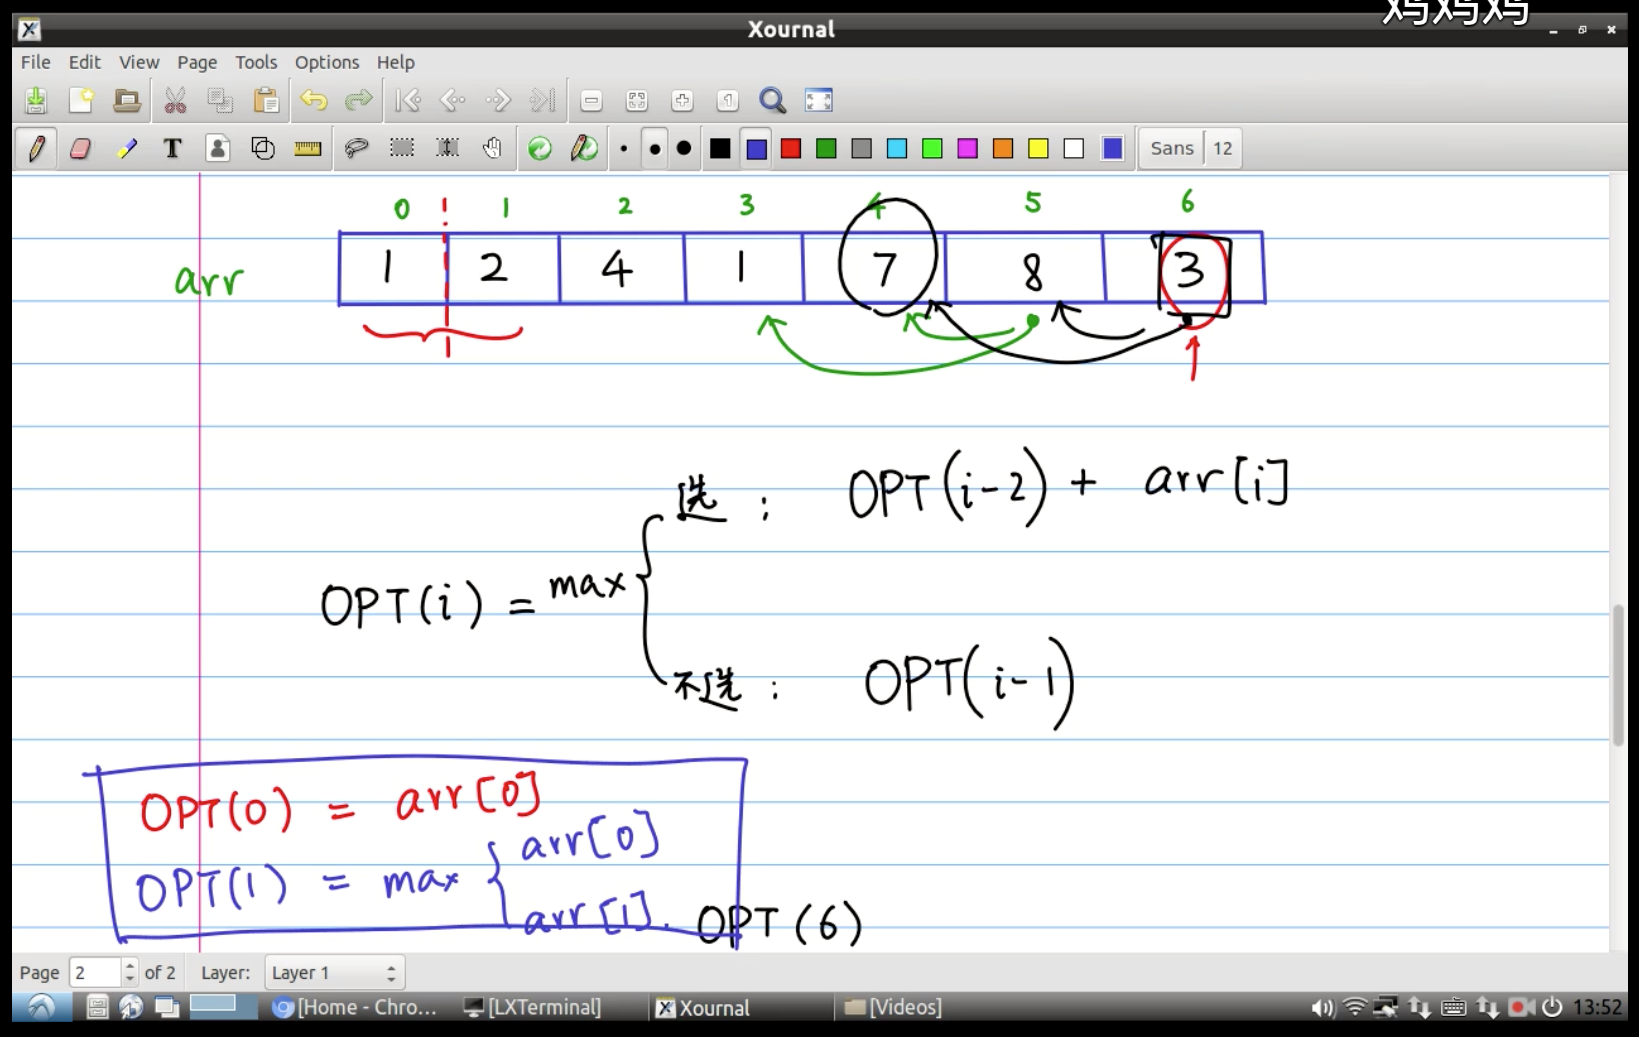 鸡鸡鸡
Xournal
File Edit View Page Tools Options Help
Sans 12
0 1 2 3 4 5 6
arr 1 2 4 1 7 8 3
选: OPT(i-2) + arr[i]
OPT(i) = max
不选: OPT(i-1)
OPT(0) = arr[0]
arr[0]
OPT(1) = max
arr[1].
OPT(6)
Page 2 of 2 Layer: Layer 1
[Home - Chro... [LXTerminal] Xournal [Videos] 13:52